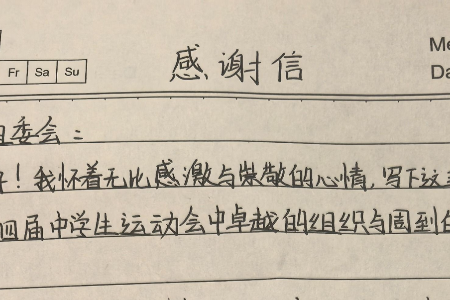 感谢信
Me
Fr Sa Su
Da
委会：
！我怀着无比感激与崇敬的心情，写下这
四届中学生运动会中卓越的组织与周到